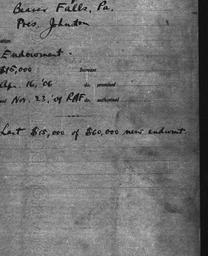 Beaver Falls, Pa.
Pres. Johnston
Endowment.
$15,000 Increase
Apr. 16, '06 do. promised
Nov. 23, '09 RAF do. authorized
Last $15,000 of $60,000 new endwmt.